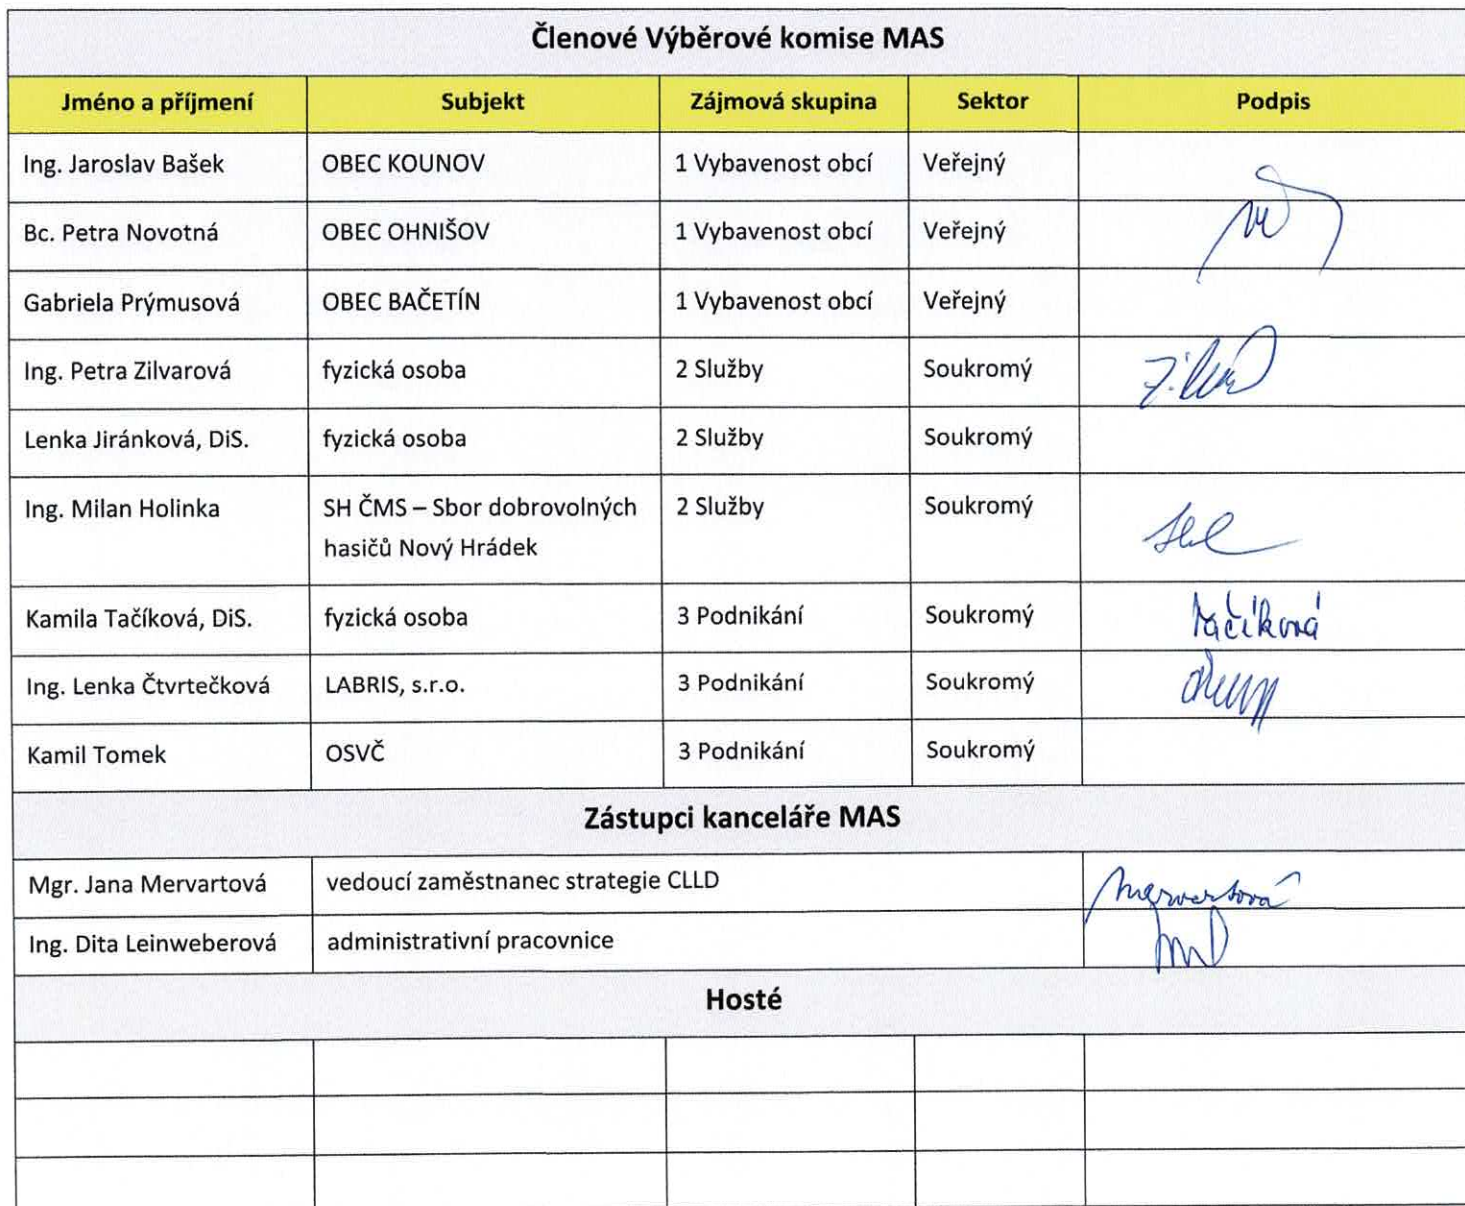 Členové Výběrové komise MAS
Jméno a příjmení Subjekt Zájmová skupina Sektor Podpis
Ing. Jaroslav Bašek OBEC KOUNOV 1 Vybavenost obcí Veřejný
Bc. Petra Novotná OBEC OHNIŠOV 1 Vybavenost obcí Veřejný
Gabriela Prýmusová OBEC BAČETÍN 1 Vybavenost obcí Veřejný
Ing. Petra Zilvarová fyzická osoba 2 Služby Soukromý
Lenka Jiránková, DiS. fyzická osoba 2 Služby Soukromý
Ing. Milan Holinka SH ČMS – Sbor dobrovolných 2 Služby Soukromý
hasičů Nový Hrádek
Kamila Tačíková, DiS. fyzická osoba 3 Podnikání Soukromý Tačíková
Ing. Lenka Čtvrtečková LABRIS, s.r.o. 3 Podnikání Soukromý
Kamil Tomek OSVČ 3 Podnikání Soukromý
Zástupci kanceláře MAS
Mgr. Jana Mervartová vedoucí zaměstnanec strategie CLLD Mervartová
Ing. Dita Leinweberová administrativní pracovnice
Hosté